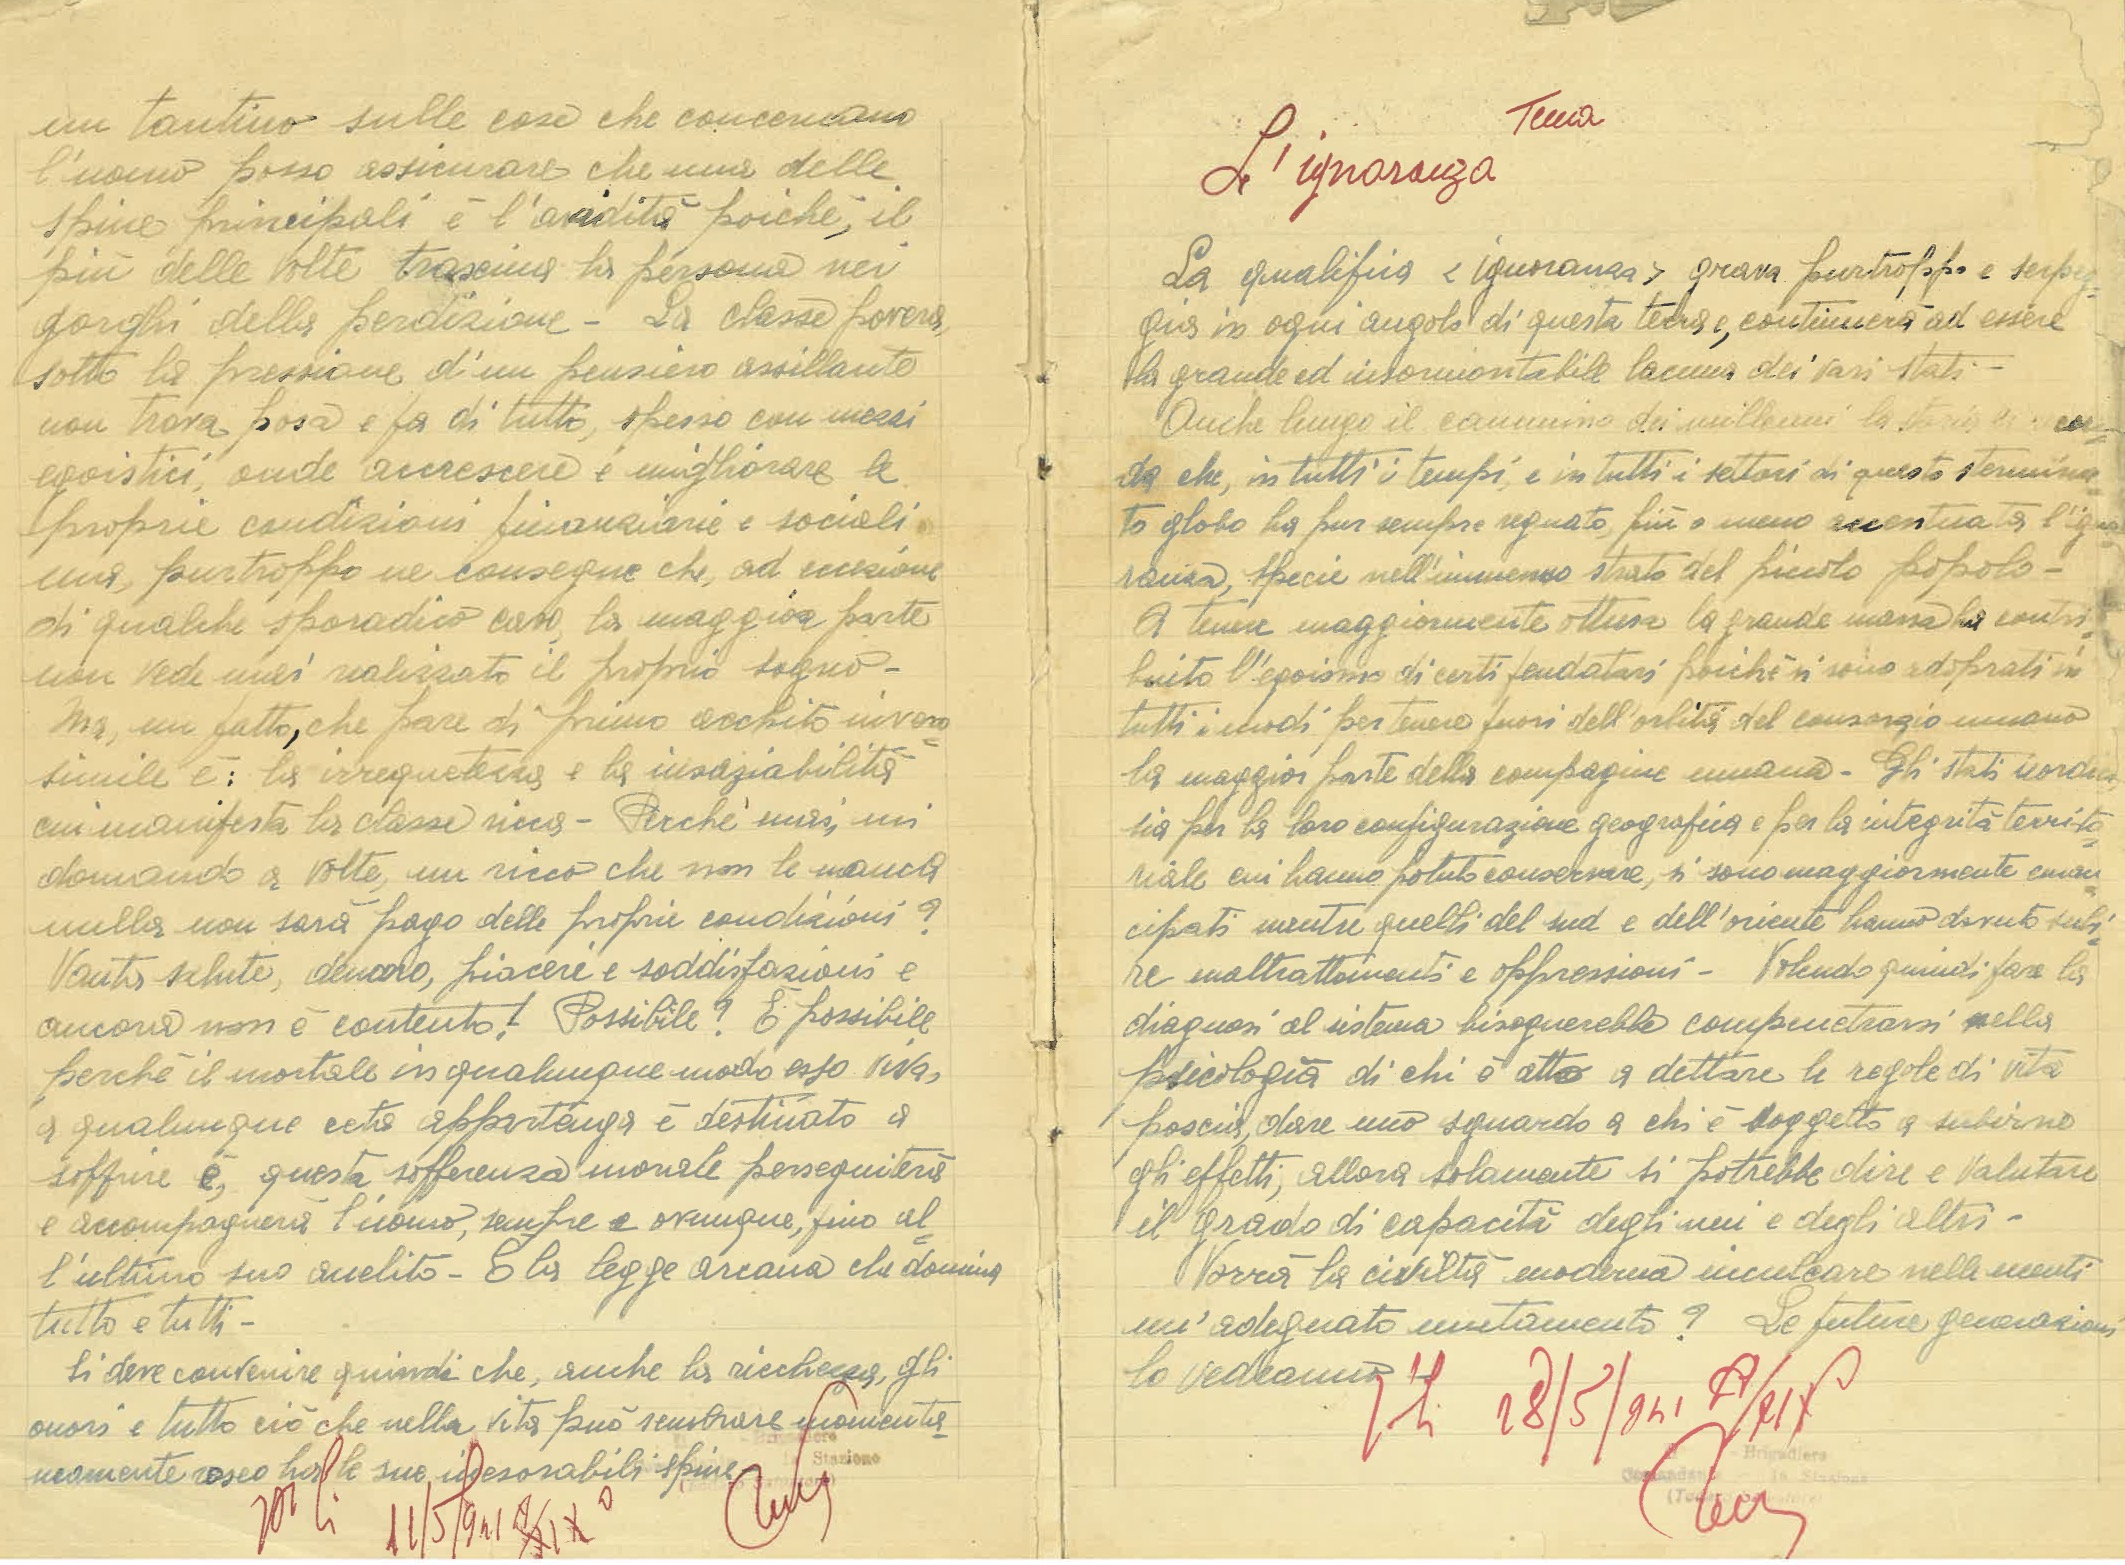 un tantino sulle cose che concernano
l'uomo posso assicurare che una delle
spine principali è l'avidità poichè, il
più delle volte trascina la persona nei
gorghi della perdizione - La classe povera,
sotto la pressione d'un pensiero assillante
non trova posa e fa di tutto, spesso con mezzi
egoistici, onde accrescere e migliorare le
proprie condizioni finanziarie e sociali
ma, purtroppo ne consegue che, ad eccezione
di qualche sporadico caso, la maggior parte
non vede mai realizzato il proprio sogno -
Ma, un fatto, che pare di primo acchito invero=
simile è: la irrequetezza e la insaziabilità
cui manifesta la classe ricca - Perchè mai, mi
domando a volte, un ricco che non le manca
nulla non sarà pago delle proprie condizioni?
Vanta salute, denaro, piacere e soddisfazioni e
ancora non è contento! Possibile? È possibile
perchè il mortale in qualunque modo esso viva,
a qualunque ceto appartenga è destinato a
soffrire e, questa sofferenza morale perseguiterà
e accompagnerà l'uomo, sempre e ovunque, fino al=
l'ultimo suo anelito - È la legge arcana che domina
tutto e tutti -
Si deve convenire quindi che, anche la ricchezza, gli
onori e tutto ciò che nella vita può sembrare momenta=
neamente roseo ha le sue inesorabili spine
li 11/5/941 XIX°
Brigadiere
la Stazione
Tema
L'ignoranza
La qualifica < ignoranza > grava purtroppo e serpeg=
gia in ogni angolo di questa terra e, continuerà ad essere
la grande ed insormontabile lacuna dei vari stati -
Anche lungo il cammino dei millenni la storia ci ricor=
da che, in tutti i tempi, e in tutti i settori di questo stermina=
to globo ha pur sempre regnato, più o meno accentuata l'igno=
ranza, specie nell'immenso strato del piccolo popolo -
A tenere maggiormente ottusa la grande massa ha contri=
buito l'egoismo di certi feudatari poichè si sono adoprati in
tutti i modi per tenere fuori dell'orbita del consorzio umano
la maggior parte della compagine umana - Gli stati nordici,
sia per la loro configurazione geografica e per la integrità territo=
riale cui hanno potuto conservare, si sono maggiormente eman=
cipati mentre quelli del sud e dell'oriente hanno dovuto subi=
re maltrattamenti e oppressioni - Volendo quindi fare la
diagnosi al sistema bisognerebbe compenetrarsi nella
psicologia di chi è atto a dettare le regole di vita
poscia, dare uno sguardo a chi è soggetto a subirne
gli effetti, allora solamente si potrebbe dire e valutare
il grado di capacità degli uni e degli altri -
Vorrà la civiltà moderna inculcare nelle menti
un'adeguato mutamento? Le future generazioni
lo vedranno
li 28/5/941 XIX°
Brigadiere
Comandante la Stazione